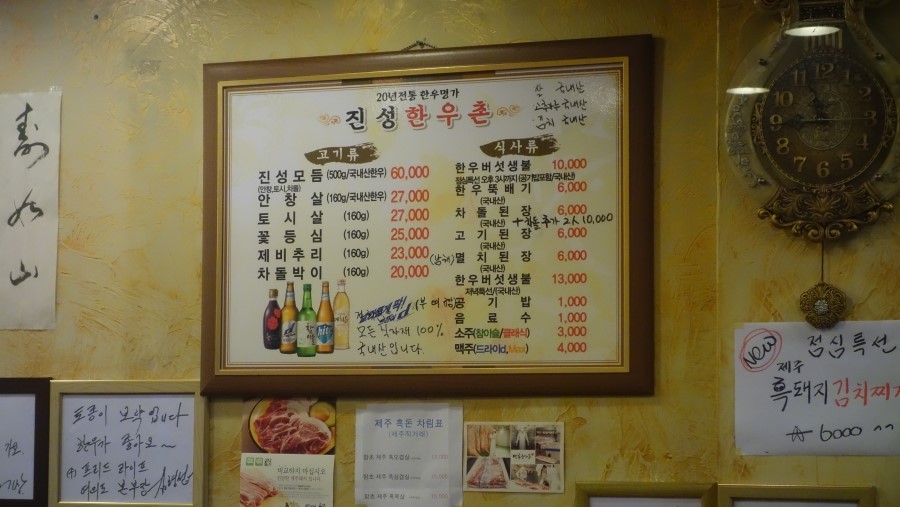 壽
如
山
20년전통 한우명가
진성한우촌
쌀 국내산
고추가루 국내산
김치 국내산
고기류
진성모듬 (500g/국내산한우) 60,000
(안창,토시,차돌)
안창살 (160g/국내산한우) 27,000
토시살 (160g) 27,000
꽃등심 (160g) 25,000
제비추리 (160g) 23,000
차돌박이 (160g) 20,000
모든 식자재 100%
국내산입니다.
식사류
한우버섯생불 10,000
점심특선 오후 3시까지 (공기밥포함/국내산)
한우뚝배기 6,000
(국내산)
차돌된장 6,000
(국내산) +차돌추가 2人 10,000
고기된장 6,000
(국내산)
(남해) 멸치된장 6,000
(국내산)
한우버섯생불 13,000
저녁특선/(국내산)
공기밥 1,000
음료수 1,000
소주(참이슬/클래식) 3,000
맥주(드라이d,Max) 4,000
NEW 점심특선
제주
흑돼지김치찌개
6000 ^^
토종이 보약입니다
한우가 좋아요~
(주) 프리드 라이프
여의도 본부장
비교하지 마십시오
제주 흑돈 차림표
(제주직거래)